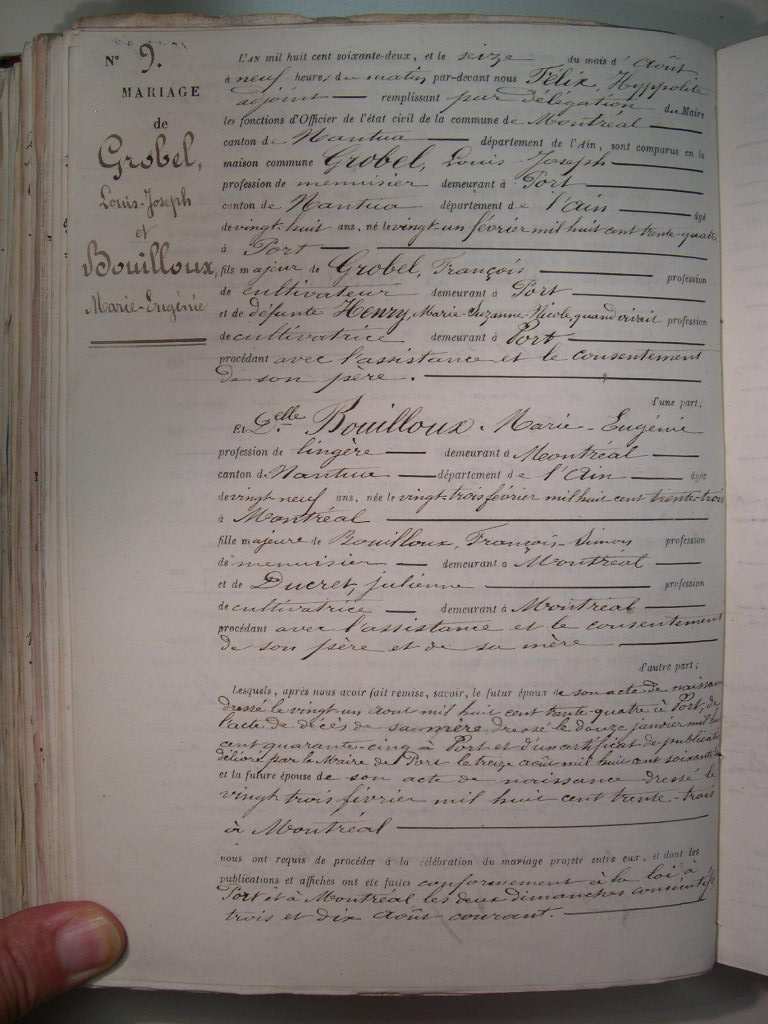 N° 9.
MARIAGE
de
Grobel,
Louis-Joseph
et
Bouilloux,
Marie-Eugénie
L'AN mil huit cent soixante-deux, et le seize du mois d'Août
à neuf heures du matin, par-devant nous Félix, Hyppolite
adjoint remplissant par délégation du Maire
les fonctions d'Officier de l'état civil de la commune de Montréal
canton de Nantua département de l'Ain, sont comparus en la
maison commune Grobel, Louis-Joseph
profession de menuisier demeurant à Port
canton de Nantua département de l'ain âgé
de vingt-huit ans, né le vingt-un février mil huit cent trente-quatre
à Port
fils majeur de Grobel, François profession
de cultivateur demeurant à Port
et de défunte Henry, Marie-Suzanne-Nicole, quand vivait profession
de cultivatrice demeurant à Port,
procédant avec l'assistance et le consentement
de son père.
d'une part;
Et Delle Bouilloux Marie-Eugénie
profession de lingère demeurant à Montréal
canton de Nantua département de l'Ain âgée
de vingt-neuf ans, née le vingt-trois février mil huit cent trente-trois
à Montréal
fille majeure de Bouilloux, François-Simon profession
de menuisier demeurant à Montréal
et de Ducret, julienne profession
de cultivatrice demeurant à Montréal
procédant avec l'assistance et le consentement
de son père et de sa mère
d'autre part;
Lesquels, après nous avoir fait remise, savoir, le futur époux de son acte de naissance
dressé le vingt-un août mil huit cent trente-quatre à Port, de
l'acte de décès de sa mère dressé le douze janvier mil huit
cent quarante-cinq à Port et d'un certificat de publicat
délivré par le Maire de Port le treize août mil huit cent soixante
et la future épouse de son acte de naissance dressé le
vingt trois février mil huit cent trente-trois
à Montréal
nous ont requis de procéder à la célébration du mariage projeté entre eux, et dont les
publications et affiches ont été faites conformément à la loi à
Port et à Montréal les deux dimanches consécutifs
trois et dix Août courant.